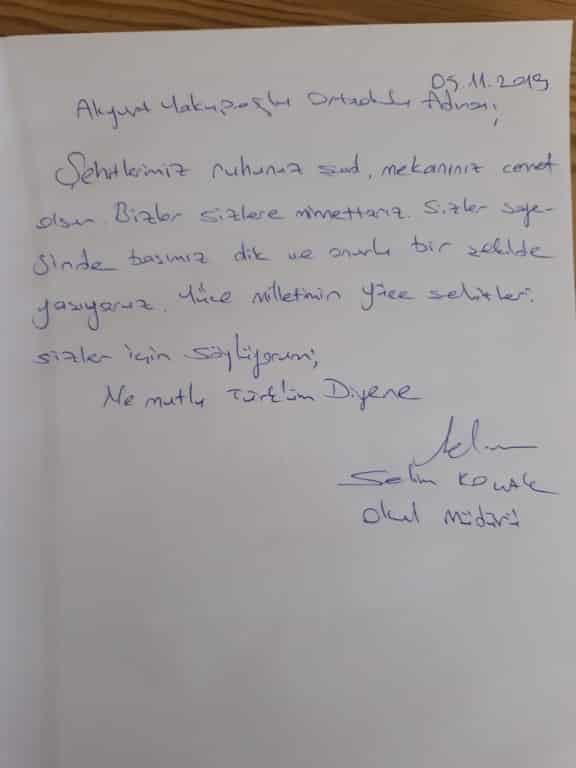 05.11.2019
Akyurt Yakupoğlu Ortaokulu Adına;
Şehitlerimiz ruhunuz şad, mekanınız cennet
olsun. Bizler sizlere minnettarız. Sizler saye-
sinde başımız dik ve onurlu bir şekilde
yaşıyoruz. Yüce milletimin yüce şehitleri.
sizler için söylüyorum;
Ne mutlu Türk'üm Diyene
Selim
Okul Müdürü